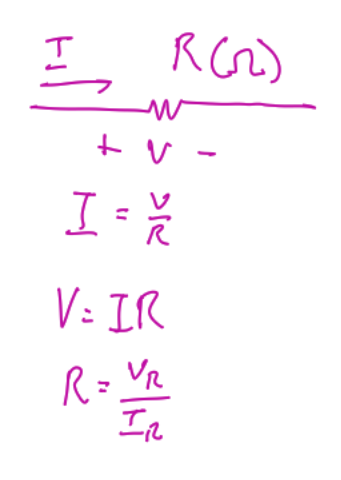 I R(Ω)
+ V -
I = V/R
V = IR
R = V_R/I_R